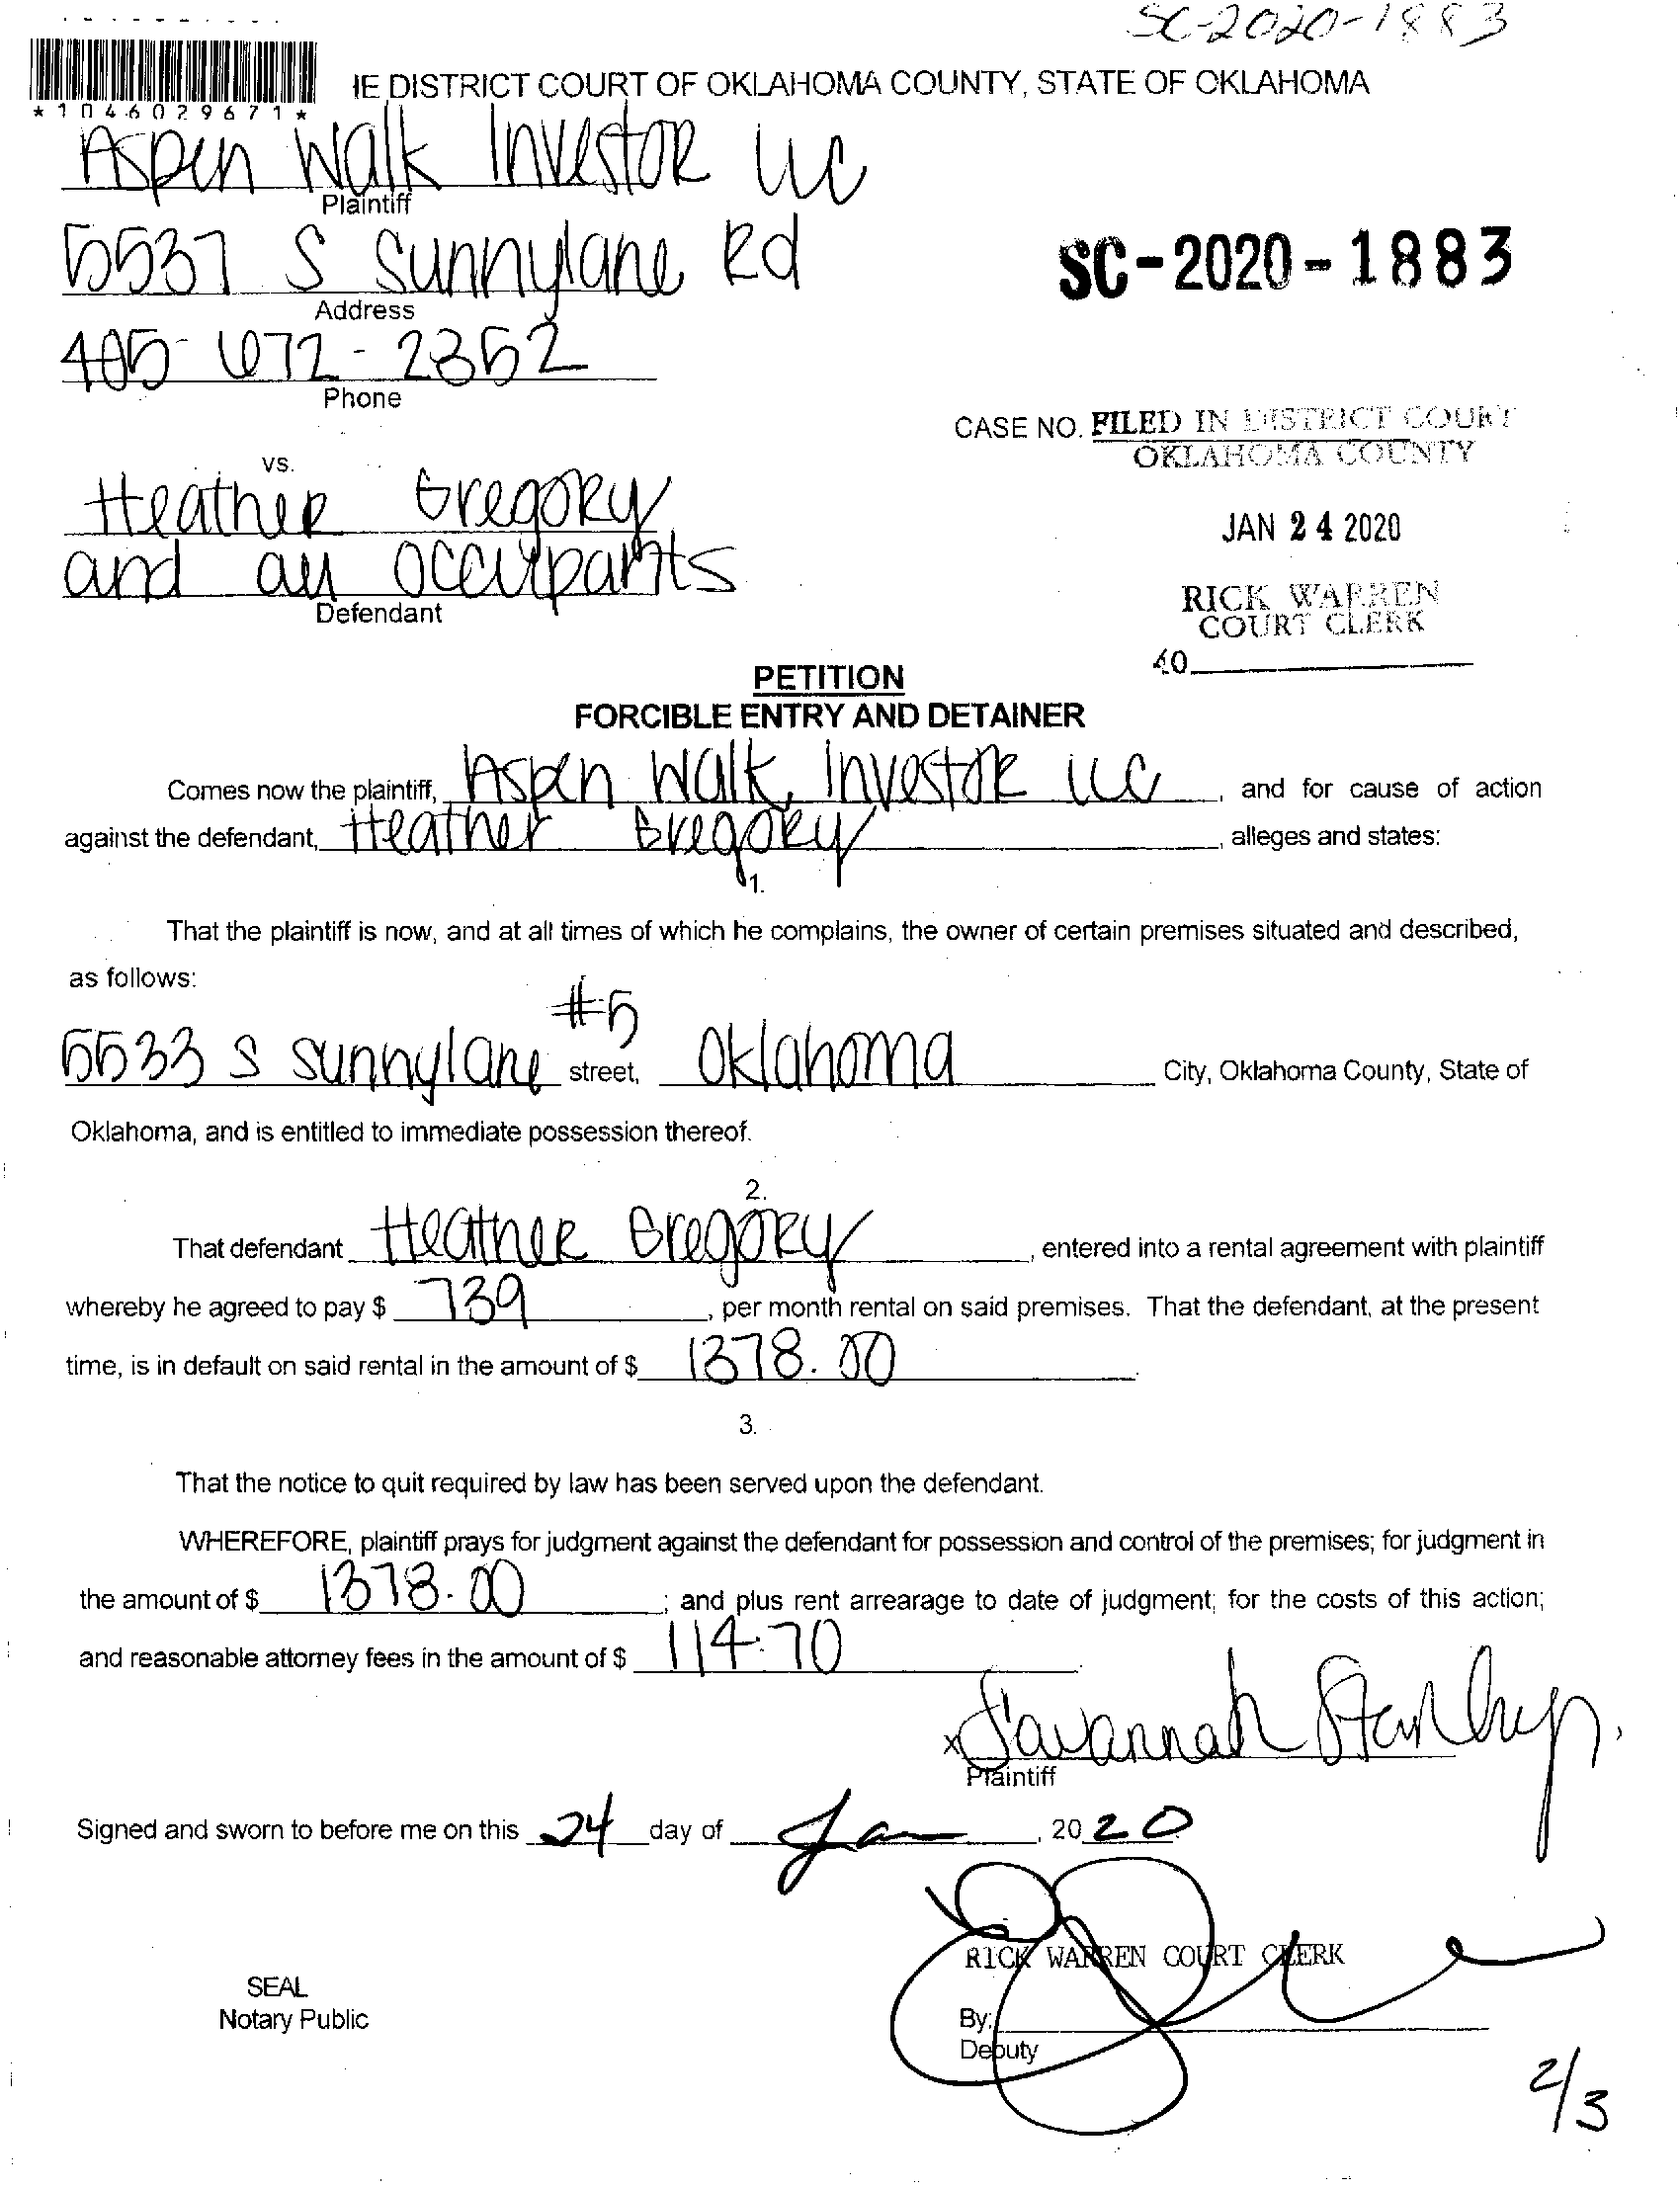 SC-2020-1883
IE DISTRICT COURT OF OKLAHOMA COUNTY, STATE OF OKLAHOMA
*1046029671*
Aspen Walk Investor LLC
Plaintiff
5537 S Sunnylane Rd
Address
SC-2020-1883
405-672-2352
Phone
CASE NO. FILED IN DISTRICT COURT
OKLAHOMA COUNTY
vs.
Heather Gregory
JAN 24 2020
and all occupants
Defendant
RICK WARREN
COURT CLERK
40
PETITION
FORCIBLE ENTRY AND DETAINER
Comes now the plaintiff, Aspen Walk Investor LLC, and for cause of action
against the defendant, Heather Gregory, alleges and states:
1.
That the plaintiff is now, and at all times of which he complains, the owner of certain premises situated and described,
as follows:
#5
5533 S Sunnylane street, Oklahoma City, Oklahoma County, State of
Oklahoma, and is entitled to immediate possession thereof.
2.
That defendant Heather Gregory, entered into a rental agreement with plaintiff
whereby he agreed to pay $ 739, per month rental on said premises. That the defendant, at the present
time, is in default on said rental in the amount of $ 1378.00
3.
That the notice to quit required by law has been served upon the defendant.
WHEREFORE, plaintiff prays for judgment against the defendant for possession and control of the premises; for judgment in
the amount of $ 1378.00; and plus rent arrearage to date of judgment; for the costs of this action;
and reasonable attorney fees in the amount of $ 114.70
x Savannah
Plaintiff
Signed and sworn to before me on this 24 day of Jan, 2020
RICK WARREN COURT CLERK
SEAL
Notary Public
By:
Deputy
2/3